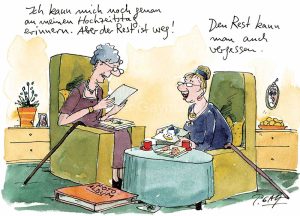 Ich kann mich noch genau
an meinen Hochzeitstag
erinnern. Aber der Rest ist weg!
Den Rest kann
man auch
vergessen.